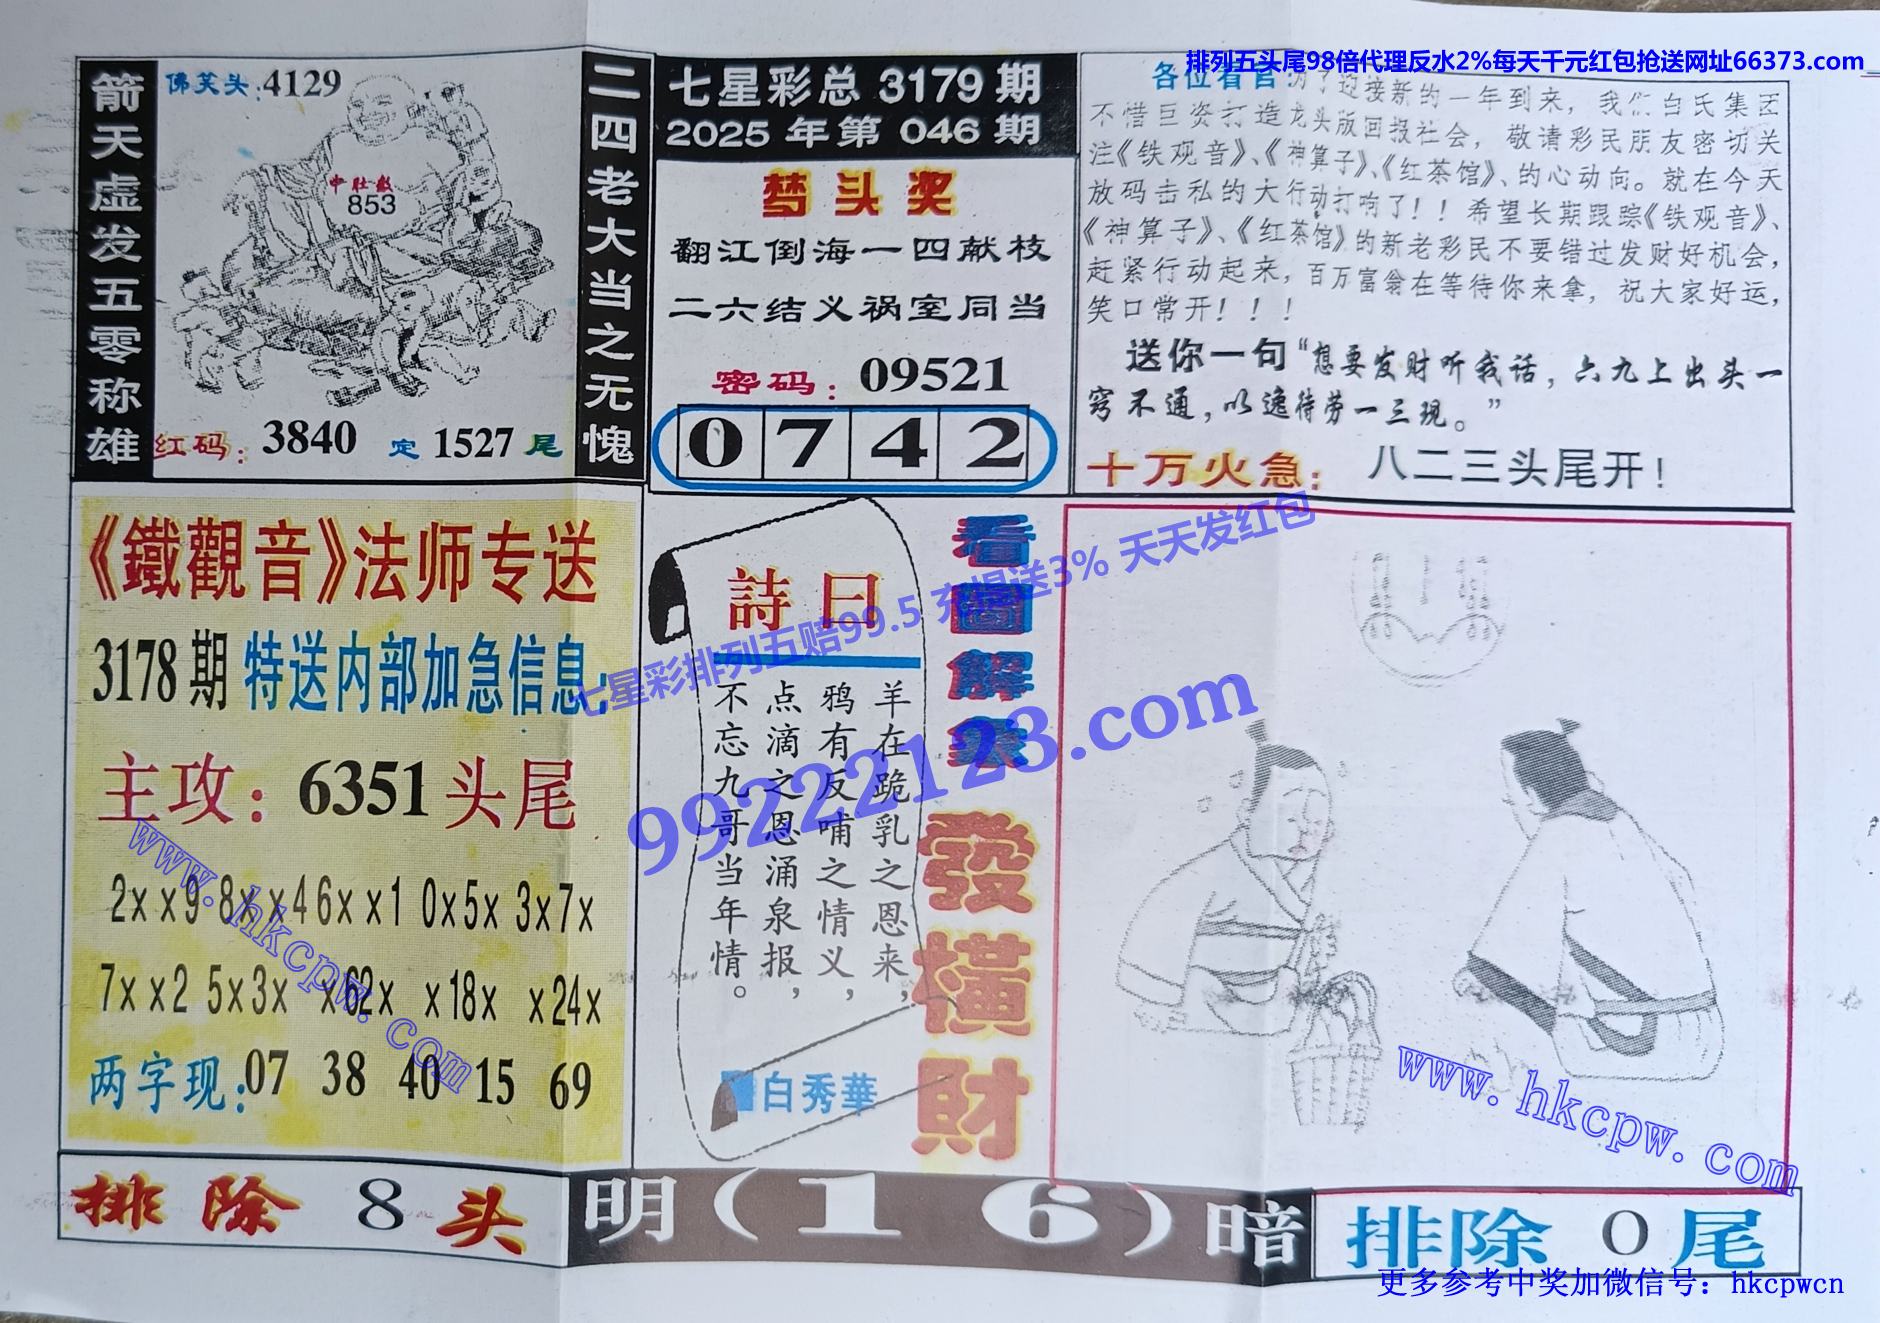 排列五头尾98倍代理反水2%每天千元红包抢送网址66373.com
箭天虚发五零称雄
佛笑头:4129
中肚数
853
红码:3840 定1527尾
二四老大当之无愧
七星彩总3179期
2025年第046期
梦头奖
翻江倒海一四献枝
二六结义祸室同当
密码:09521
0742
各位看官:为了迎接新的一年到来，我们白氏集团
不惜巨资打造龙头版回报社会，敬请彩民朋友密切关
注《铁观音》、《神算子》、《红茶馆》、的心动向。就在今天
放码击私的大行动打响了！！希望长期跟踪《铁观音》、
《神算子》、《红茶馆》的新老彩民不要错过发财好机会，
赶紧行动起来，百万富翁在等待你来拿，祝大家好运，
笑口常开！！！
送你一句“想要发财听我话，六九上出头一
窍不通，以逸待劳一三现。”
十万火急:八二三头尾开!
《鐵觀音》法师专送
3178期 特送内部加急信息:
主攻:6351头尾
2xx9 8xx4 6xx1 0x5x 3x7x
7xx2 5x3x x62x x18x x24x
两字现:07 38 40 15 69
詩曰
羊在跪乳之恩来，
鸦有反哺之情义，
点滴之恩涌泉报，
不忘九哥当年情。
白秀華
看圖解象
發橫財
七星彩排列五赔99.5 充提送3% 天天发红包
99222123.com
www.hkcpw.com
www.hkcpw.com
排除8头
明(16)暗
排除0尾
更多参考中奖加微信号：hkcpwcn